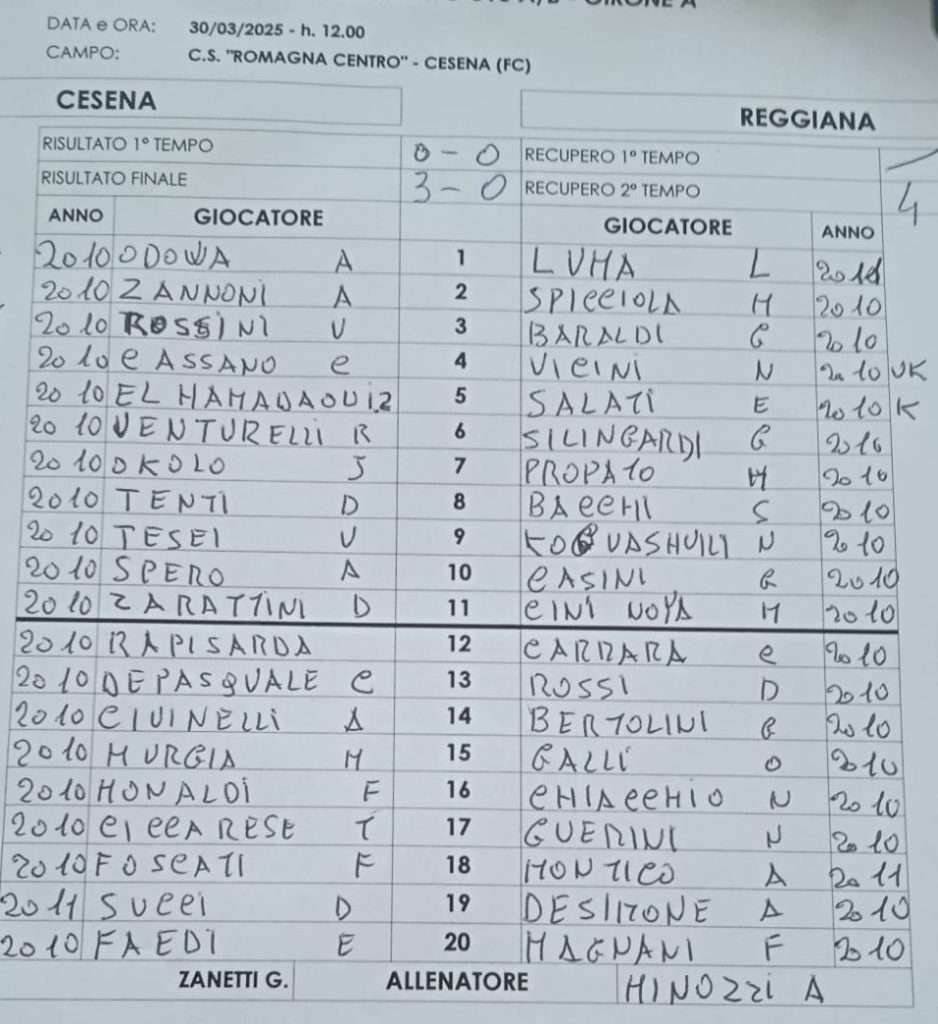 GIRONE A
DATA e ORA: 30/03/2025 - h. 12.00
CAMPO: C.S. "ROMAGNA CENTRO" - CESENA (FC)
CESENA REGGIANA
RISULTATO 1° TEMPO 0 - 0 RECUPERO 1° TEMPO /
RISULTATO FINALE 3 - 0 RECUPERO 2° TEMPO 4
ANNO GIOCATORE GIOCATORE ANNO
2010 ODOWA A 1 LUHA L
2010 ZANNONI A 2 SPICCIOLA M 2010
2010 ROSSINI V 3 BARALDI G 2010
2010 CASSANO C 4 VICINI N 2010 VK
2010 EL HAMADAOUI Z 5 SALATI E 2010 K
2010 VENTURELLI R 6 SILINGARDI G 2010
2010 OKOLO J 7 PROPATO M 2010
2010 TENTI D 8 BACCHI S 2010
2010 TESEI V 9 N 2010
2010 SPERO A 10 CASINI G 2010
2010 ZARATTINI D 11 CINI NOYA M 2010
2010 RAPISARDA 12 CARRARA C 2010
2010 DEPASQUALE C 13 ROSSI D 2010
2010 CIVINELLI A 14 BERTOLINI G 2010
2010 MURGIA M 15 GALLI O 2010
2010 MONALDI F 16 CHIACCHIO N 2010
2010 CICCARESE T 17 GUERINI N 2010
2010 FOSCATI F 18 MONTICO A 2011
2011 SUCCI D 19 DESIMONE A 2010
2010 FAEDI E 20 MAGNANI F 2010
ZANETTI G. ALLENATORE MINOZZI A